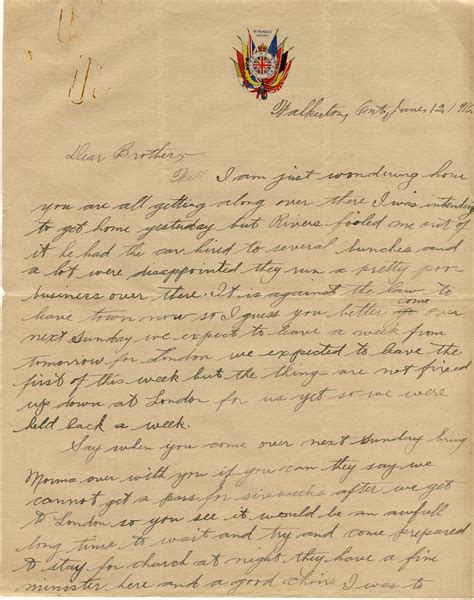 Walkerton, Ont, June 12, 1916
Dear Brother,
Well I am just wondering how
you are all getting along over there I was intending
to get home yesterday but Rivers fooled me out of
it he had the car hired to several bunches and
a lot were disappointed they run a pretty poor
business over there. It is against the law to
leave town now so I guess you better come over
next Sunday we expect to leave a week from
tomorrow for London we expected to leave the
first of this week but the things are not fixed
up down at London for us yet so we were
held back a week.
Say when you come over next Sunday bring
Norma over with you if you can they say we
cannot get a pass for six weeks after we get
to London so you see it would be an awfull
long time to wait and try and come prepared
to stay for church at night they have a fine
minister here and a good choir I was to